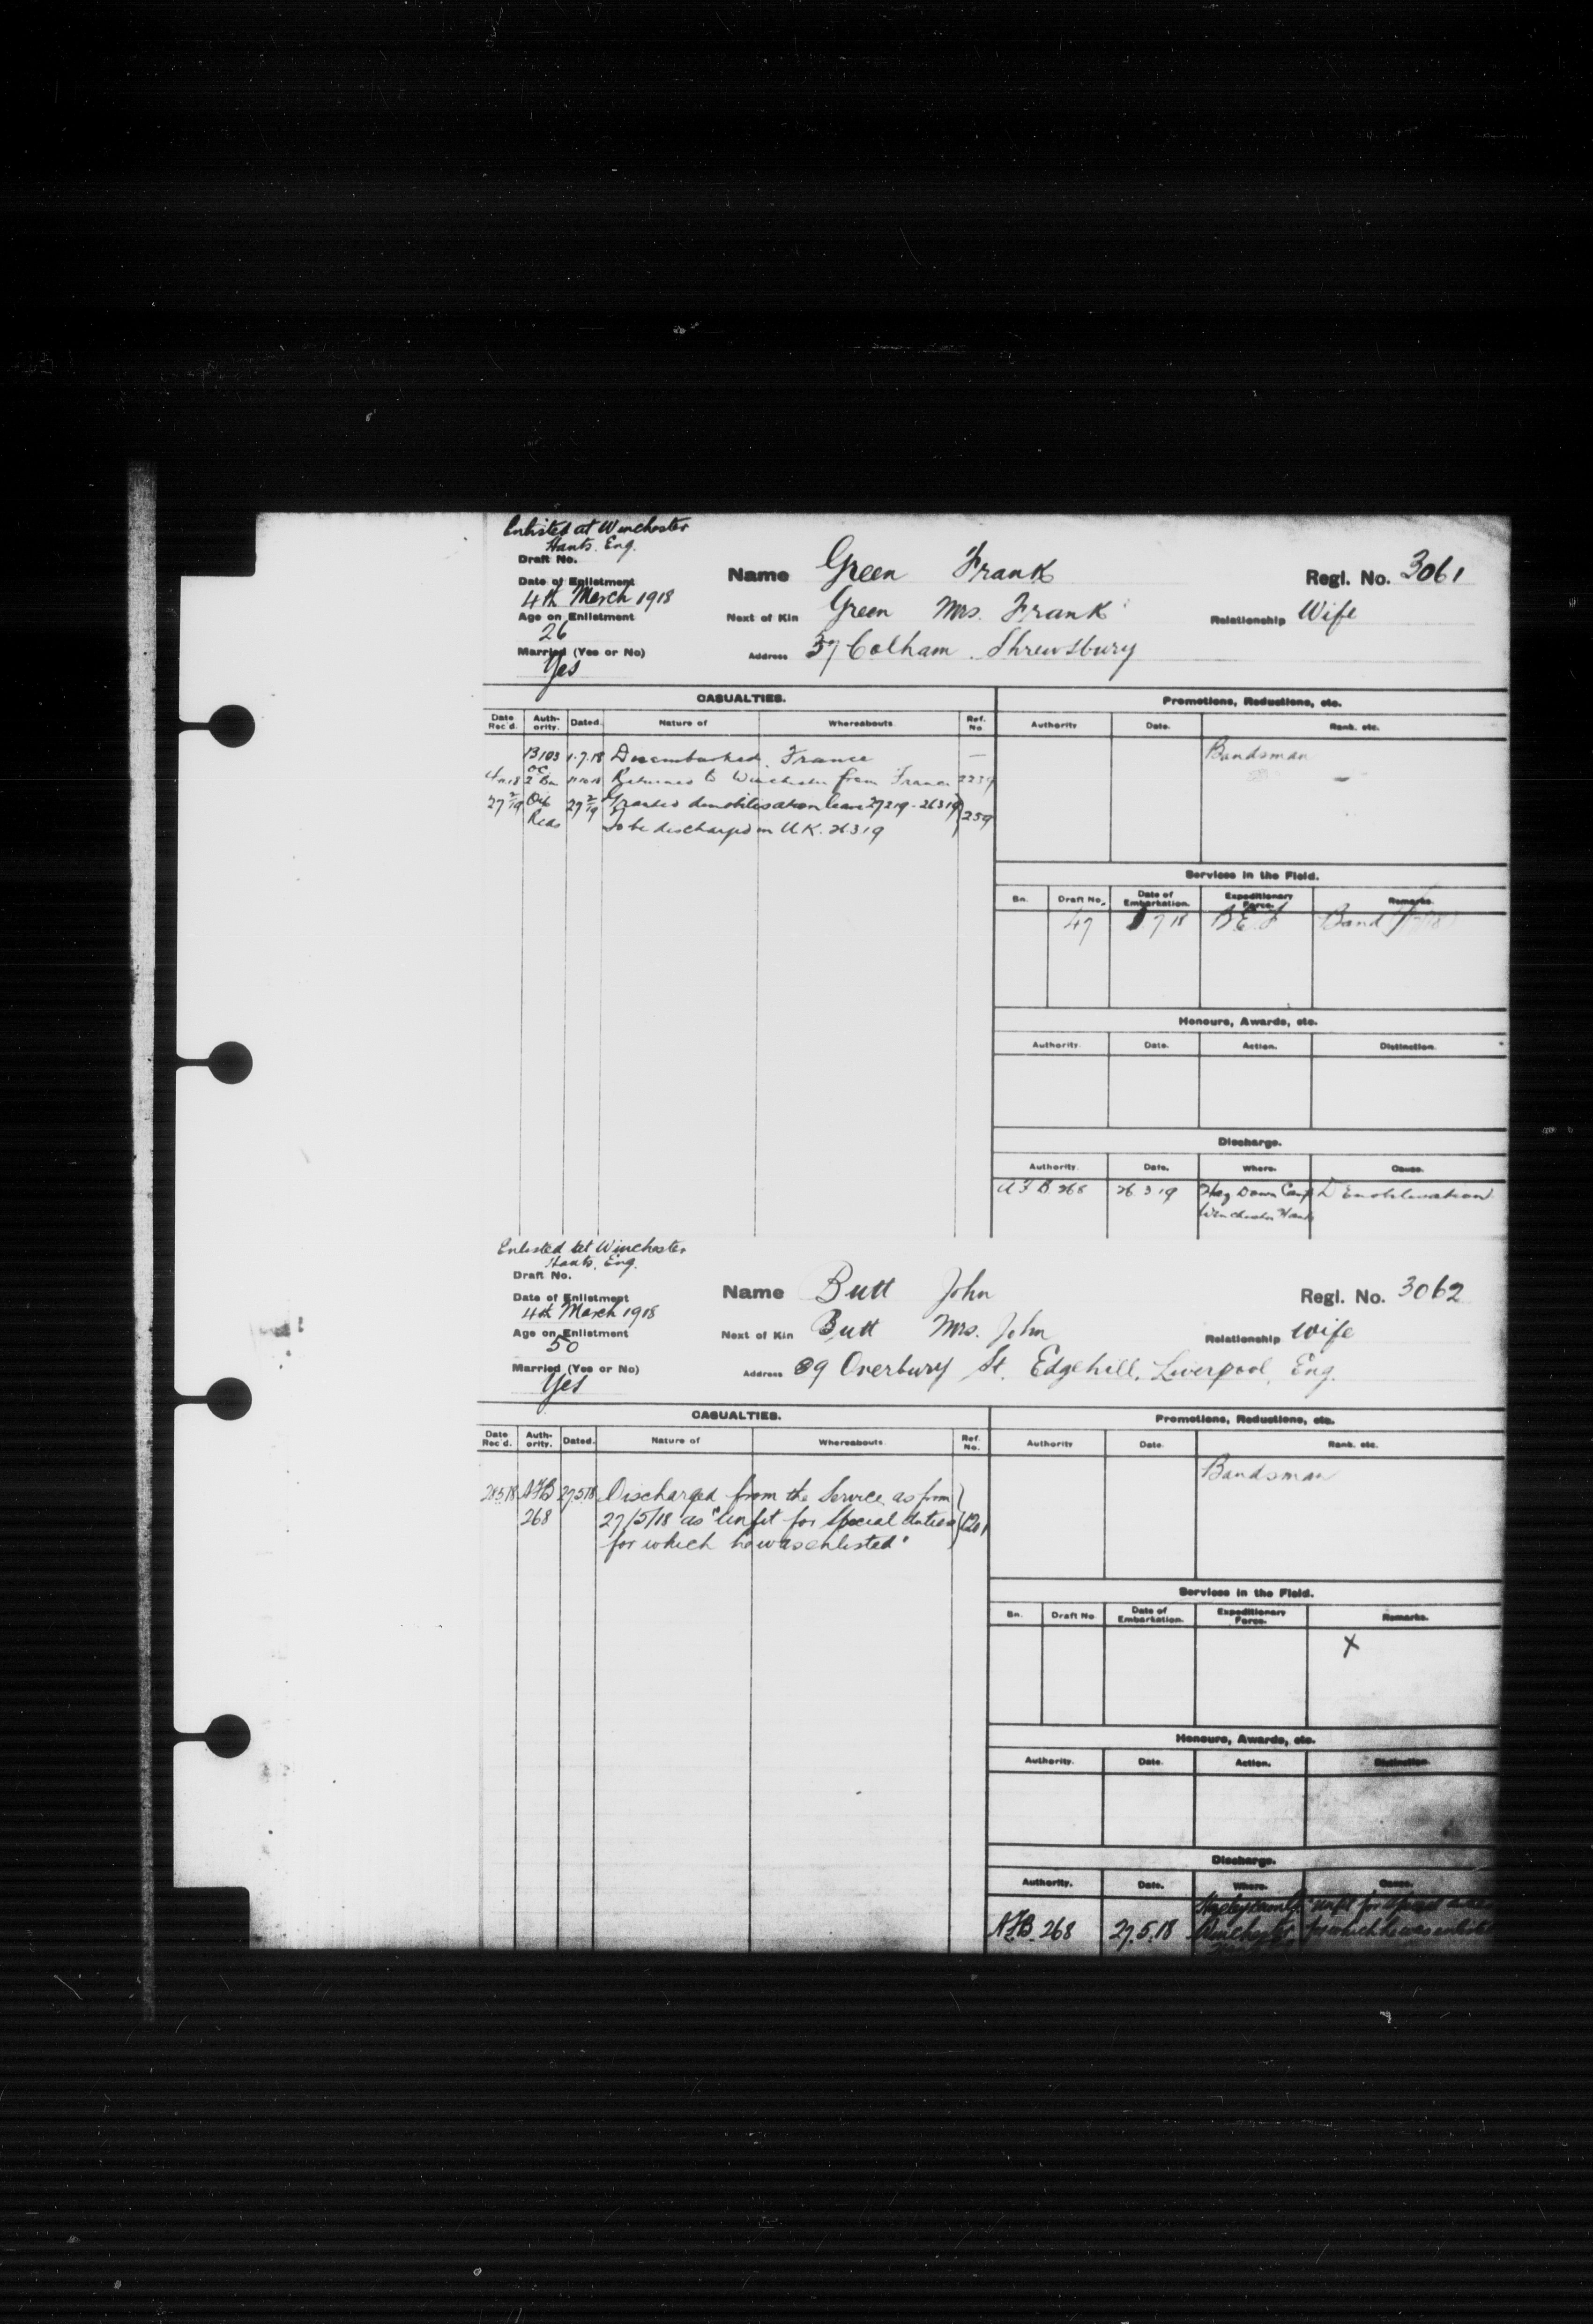 Enlisted at Winchester
Hants. Eng.
Draft No.
Name Green Frank Regl. No. 3061
Date of Enlistment
4th March 1918
Next of Kin Green Mrs. Frank Relationship Wife
Age on Enlistment
26
Address 37 Colham Shrewsbury
Married (Yes or No)
Yes
CASUALTIES.
Date Rec'd. Auth-ority. Dated. Nature of Whereabouts Ref. No
B103 1.7.18 Disembarked France —
OC 2 Bn Returned to Winchester from France 2239
27 2/19 27 2/19 Granted demobilisation leave 27 2 19 - 26 3 19 259
To be discharged in U.K. 26 3 19
Promotions, Reductions, etc.
Authority Date. Rank. etc.
Bandsman
Services in the Field.
Bn. Draft No. Date of Embarkation. Expeditionary Force. Remarks.
47 1 7 18 B.E.F Band
Honours, Awards, etc.
Authority. Date. Action. Distinction.
Discharge.
Authority. Date. Where. Cause.
A F B 268 26 3 19 Down Camp Demobilisation
Winchester Hants
Enlisted at Winchester
Hants. Eng.
Draft No.
Name Butt John Regl. No. 3062
Date of Enlistment
4th March 1918
Next of Kin Butt Mrs. John Relationship Wife
Age on Enlistment
50
Address 39 Overbury St. Edgehill, Liverpool, Eng.
Married (Yes or No)
Yes
CASUALTIES.
Date Rec'd. Auth-ority. Dated. Nature of Whereabouts Ref. No.
28.5.18 AFB 27.5.18 Discharged from the Service as from
268 27/5/18 as "Unfit for Special duties 1201
for which he was enlisted"
Promotions, Reductions, etc.
Authority Date. Rank. etc.
Bandsman
Services in the Field.
Bn. Draft No Date of Embarkation. Expeditionary Force. Remarks.
X
Honours, Awards, etc.
Authority. Date. Action. Distinction.
Discharge.
Authority. Date. Where. Cause.
"unfit for Special duties
AFB 268 27.5.18 Winchester for which he was enlisted